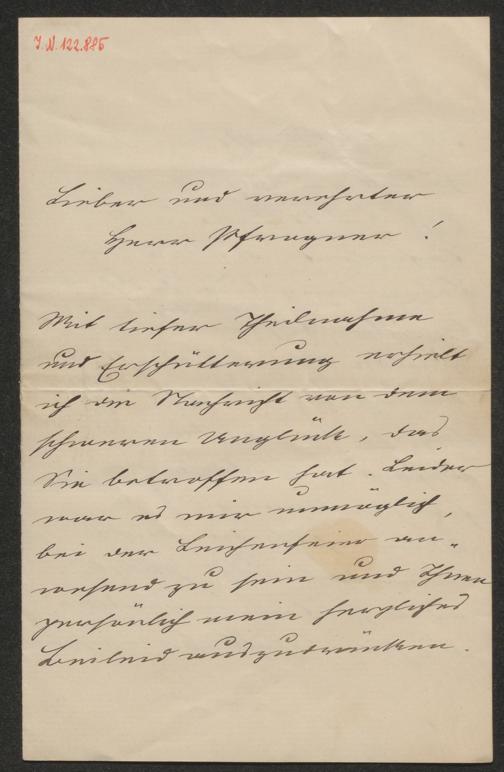 J.N. 122.885
Lieber und verehrter
Herr Pfragner!
Mit tiefer Theilnahme
und Erschütterung erhielt
ich die Nachricht von dem
schweren Unglück, das
Sie betroffen hat. Leider
war es mir unmöglich,
bei der Leichenfeier an-
wesend zu sein und Ihnen
persönlich mein herzliches
Beileid auszudrücken.